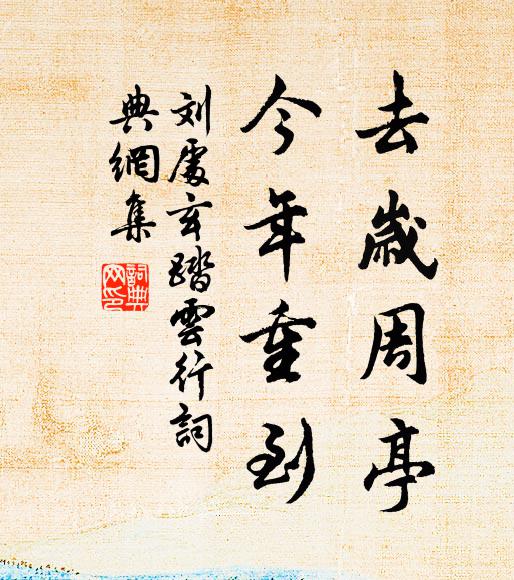 去歲周亭
今年重到
刘處玄踏雲行詞
典網集
詞典
网印